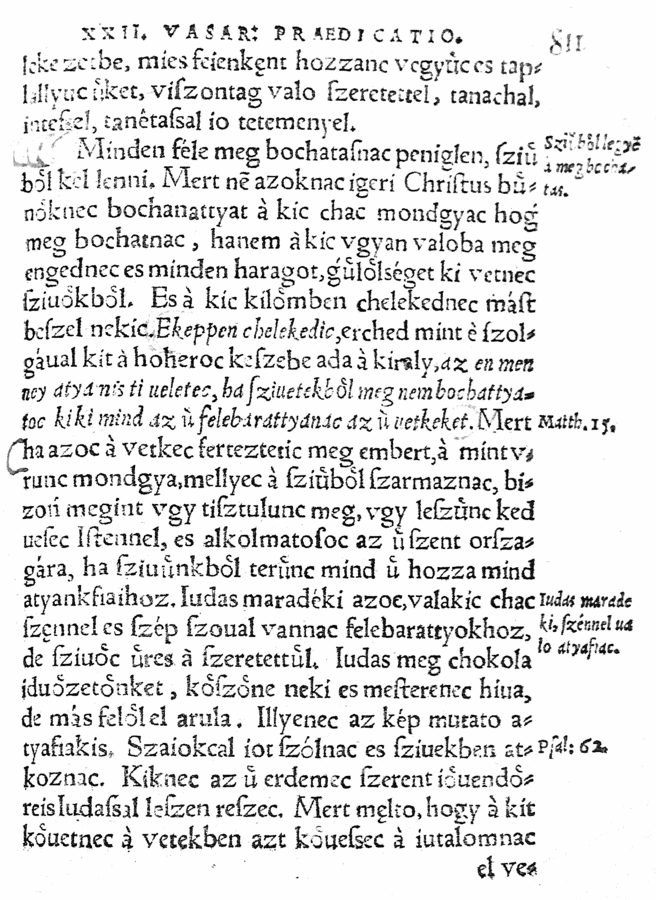 XXII. VASAR: PRAEDICATIO. 811
leke zetbe, mies feienkęnt hozzanc vegyůc es tap⸗
lallyuc ůket, viſzontag valo ſzeretettel, tanachal,
inteſſel, tanêtaſsal io tetemenyel.
Minden féle meg bochataſnac peniglen, ſziů
ből kel lenni. Mert nē azoknac igeri Chriſtus bů⸗
nőknec bochanattyat à kic chac mondgyac hog
meg bochatnac, hanem à kic vgyan valoba meg
engednec es minden haragot, gůlőlséget ki vetnec
ſziuőkből. Es à kic kilőmben chelekednec máſt
beſzel nekic. Ekeppen chelekedic, erched mint è ſzol⸗
gáual kit à hoheroc keſzebe ada à kiraly, az en men
ney atya nis ti ueletec, ha ſziuetekből meg nem bochattya⸗
toc ki ki mind az ů felebarattyanac az ů uetkeket. Mert
ha azoc à vetkec ferteztetic meg embert, à mint v⸗
runc mondgya, mellyec à ſziůből ſzarmaznac, bi⸗
zoń megint vgy tiſztulunc meg, vgy leſzůnc ked
ueſec Iſtennel, es alkolmatoſoc az ů ſzent orſza⸗
gára, ha ſziuůnkből terůnc mind ů hozza mind
atyankfiaihoz. Iudas maradéki azoc, valakic chac
ſzęnnel es ſzép ſzoual vannac felebarattyokhoz,
de ſziuőc ůres à ſzeretettůl. Iudas meg chokola
iduőzetőnket, kőſzőne neki es meſterenec hiua,
de más felől el arula. Illyenec az kép mutato a⸗
tyafiakis. Szaiokcal iot ſzólnac es ſziuekben at⸗
koznac. Kiknec az ů erdemec ſzerent iőuendő⸗
reis Iudaſsal leſzen reſzec. Mert męlto, hogy à kit
kőuetnec à vetekben azt kőueſsec à iutalomnac
el ve⸗
Sziůből legyē
a meg bocha⸗
tas.
Matth. 15.
Iudas marade
ki, ſzénnel ua
lo atyafiac.
Pſal: 62.